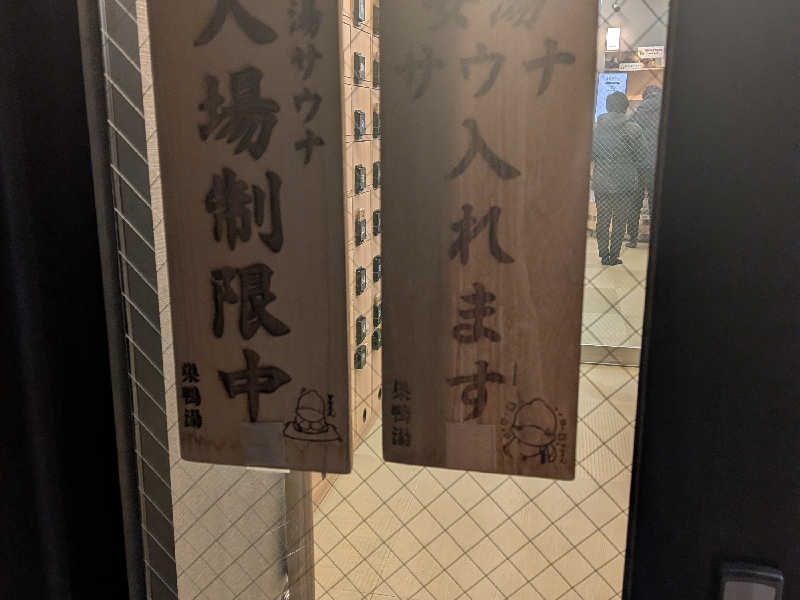 湯サウナ
入場制限中
巣鴨湯
湯
サウナ
入れます
巣鴨湯